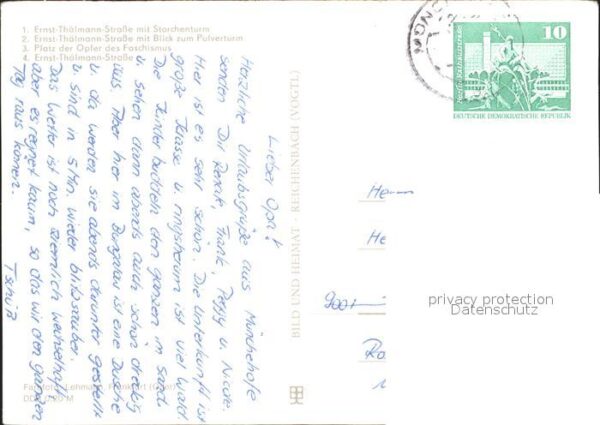 1. Ernst-Thälmann-Straße mit Storchenturm
2. Ernst-Thälmann-Straße mit Blick zum Pulverturm
3. Platz der Opfer des Faschismus
4. Ernst-Thälmann-Straße
Lieber Opa!
Herzliche Urlaubsgrüße aus Münchehofe
senden Dir Frank, Peggy u. Nicole.
Hier ist es sehr schön. Die Unterkunft ist
große Klasse u. ringsherum ist viel Wald.
Die Kinder buddeln den ganzen im Sand
u. sehen dann abends auch schön dreckig
aus. Aber hier im Bungalow ist eine Dusche
u. da werden sie abends darunter gestellt
u. sind in 5 Min. wieder blitzsauber.
Das Wetter ist noch ziemlich wechselhaft
aber es regnet kaum, so das wir den ganzen
Tag raus können.
Tschüß
Farbfoto: Lehmann, Frankfurt (Oder)
BILD UND HEIMAT · REICHENBACH (VOGTL)
MÜNC
10
DEUTSCHE DEMOKRATISCHE REPUBLIK
Herrn
He
9001
privacy protection
Datenschutz